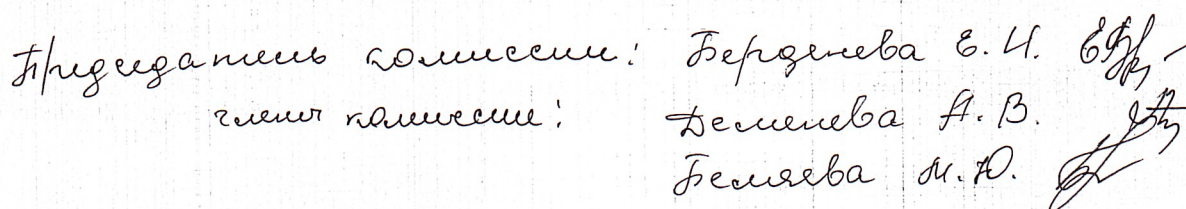 Председатель комиссии: Берденева Е. И.
члены комиссии: Деменева А. В.
Беляева М. Ю.